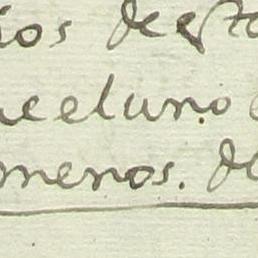 ios de esto
ue el uno
menos. de